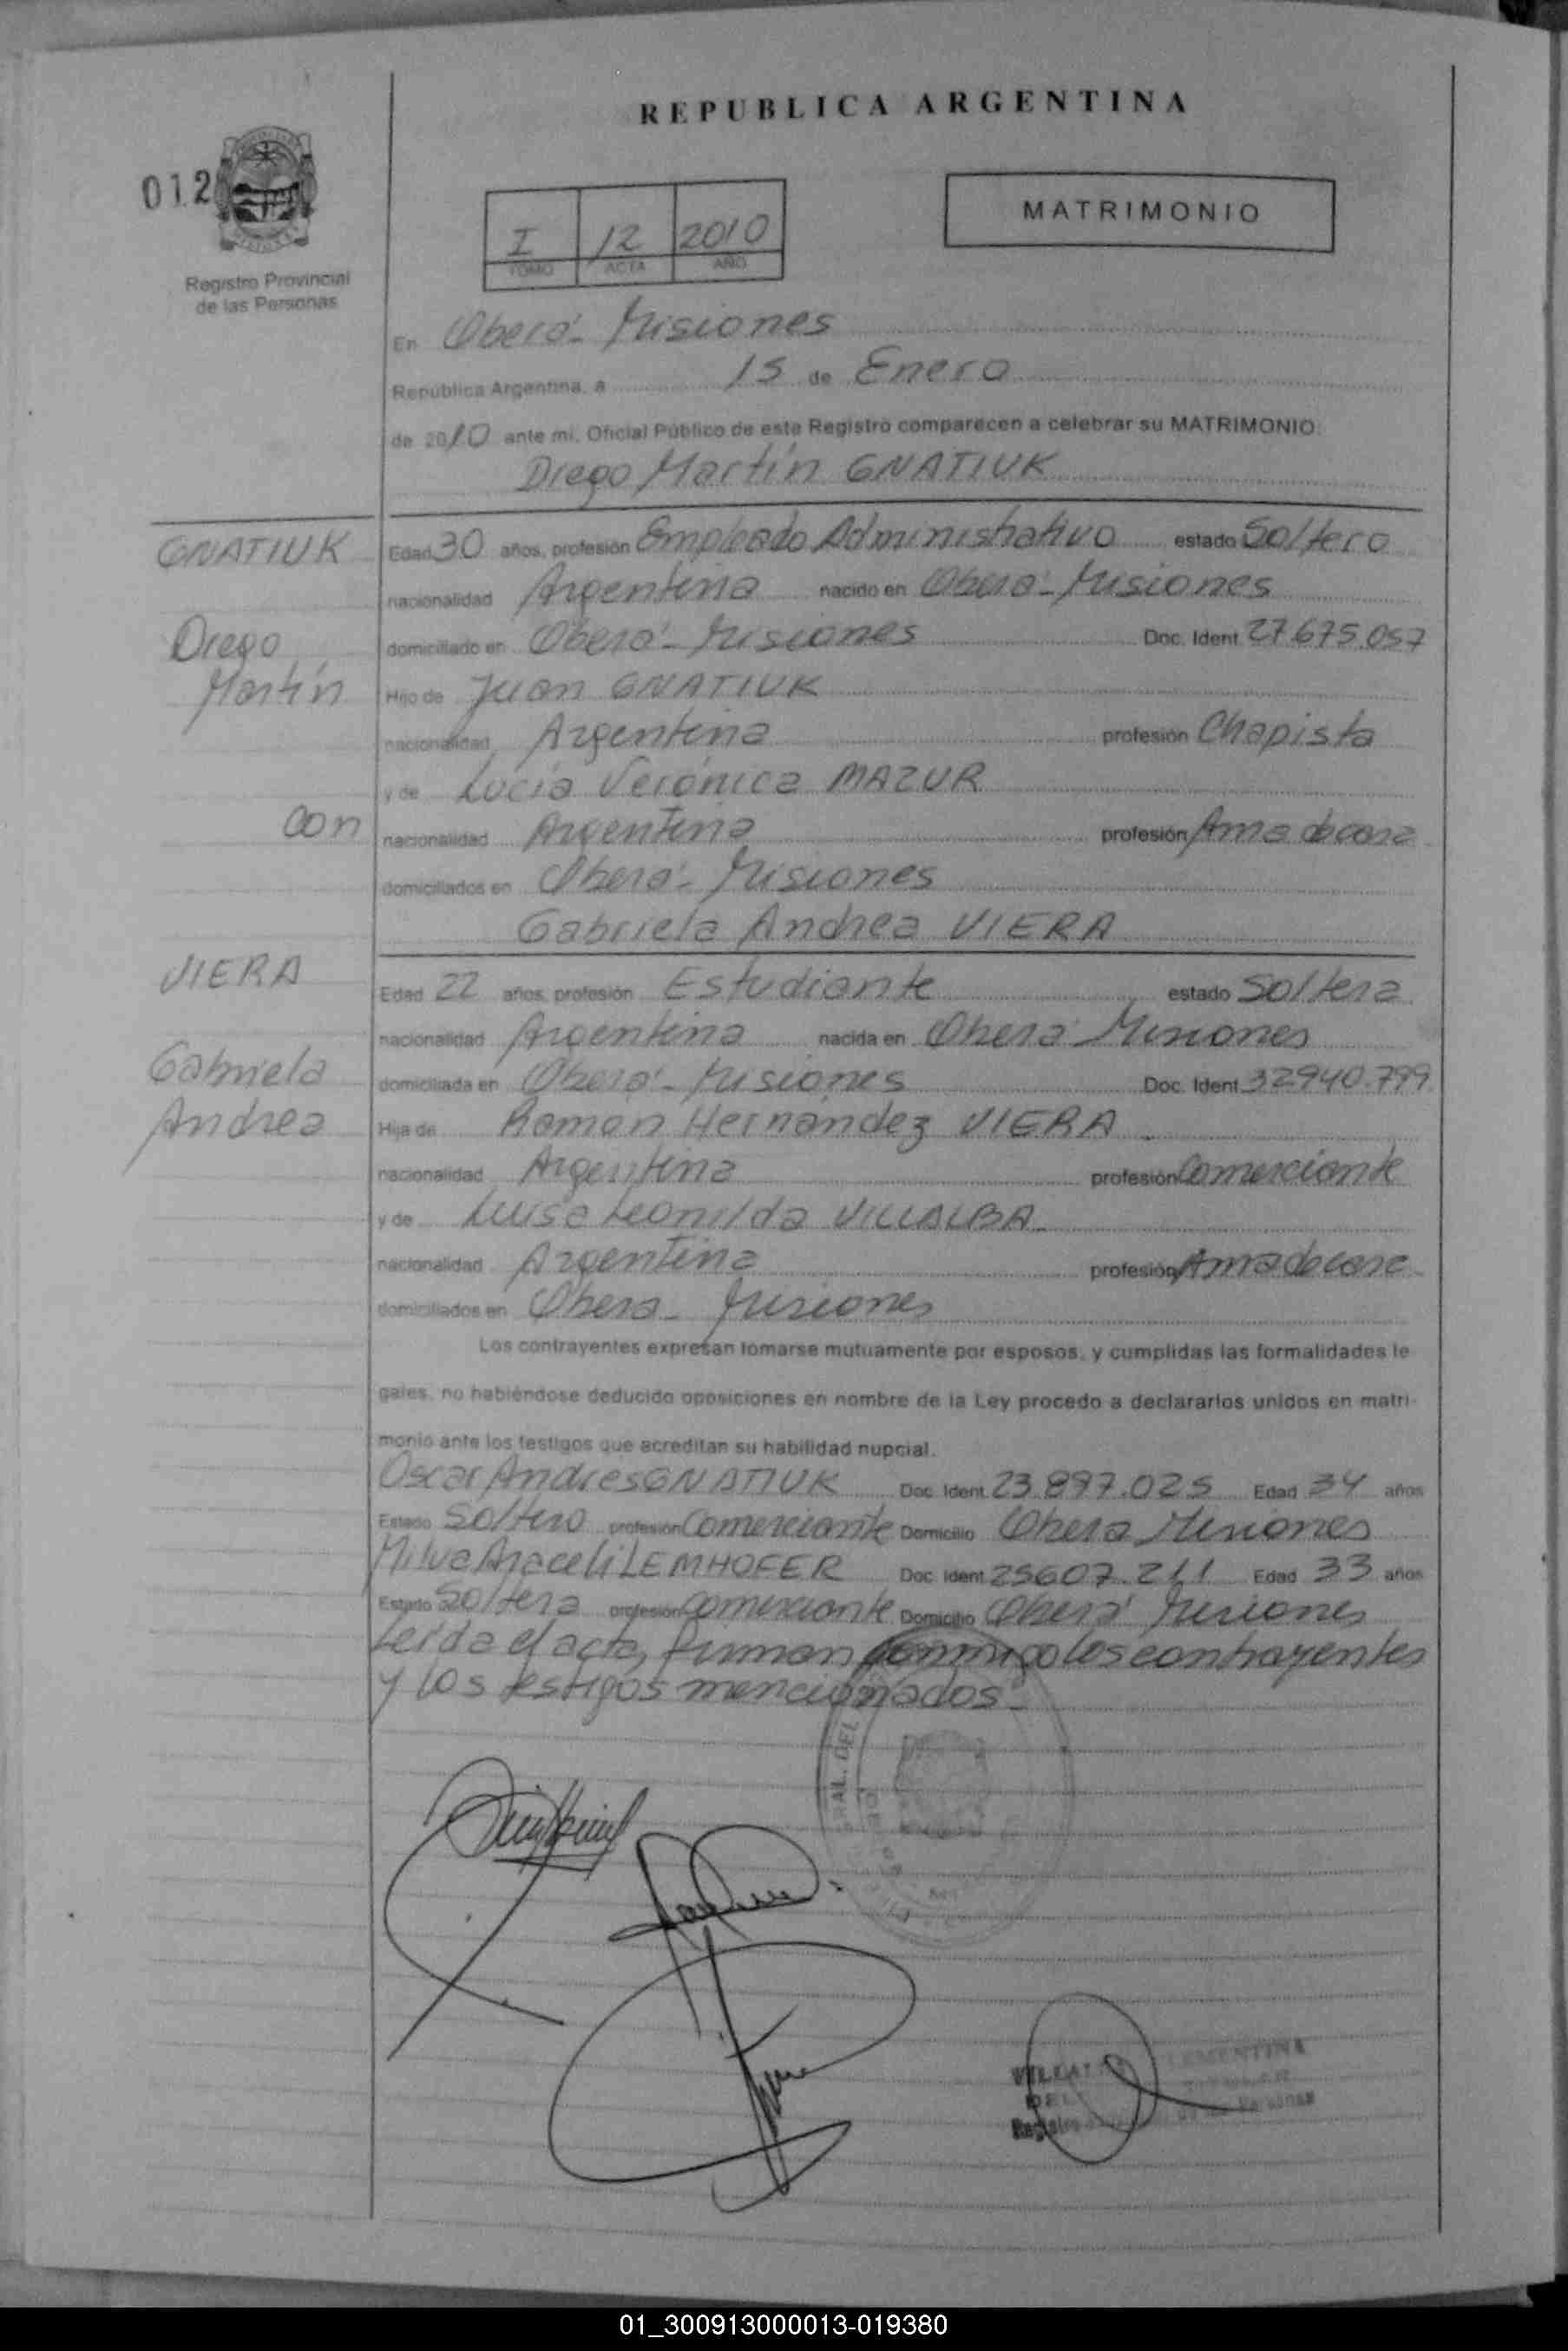 REPUBLICA ARGENTINA
012
Registro Provincial
de las Personas
MATRIMONIO
I 12 2010
TOMO ACTA AÑO
En Oberá - Misiones
República Argentina, a 15 de Enero
de 2010 ante mi, Oficial Público de este Registro comparecen a celebrar su MATRIMONIO:
Diego Martín GNATIUK
GNATIUK
Diego
Martín
con
VIERA
Gabriela
Andrea
Edad 30 años, profesión Empleado Administrativo estado Soltero
nacionalidad Argentina nacido en Oberá - Misiones
domiciliado en Oberá - Misiones Doc. Ident. 27.675.057
Hijo de Juan GNATIUK
nacionalidad Argentina profesión Chapista
y de Lucía Verónica MAZUR
nacionalidad Argentina profesión Ama de casa
domiciliados en Oberá - Misiones
Gabriela Andrea VIERA
Edad 22 años, profesión Estudiante estado Soltera
nacionalidad Argentina nacida en Oberá Misiones
domiciliada en Oberá - Misiones Doc. Ident. 32940.799
Hija de Ramon Hernández VIERA
nacionalidad Argentina profesión Comerciante
y de Luisa Leonilda VILLALBA
nacionalidad Argentina profesión Ama de casa
domiciliados en Oberá - Misiones
Los contrayentes expresan tomarse mutuamente por esposos, y cumplidas las formalidades le
gales, no habiéndose deducido oposiciones en nombre de la Ley procedo a declararlos unidos en matri-
monio ante los testigos que acreditan su habilidad nupcial.
Oscar Andres GNATIUK Doc. Ident. 23.897.025 Edad 34 años
Estado Soltero profesión Comerciante Domicilio Oberá Misiones
Milva Araceli LEMHOFER Doc. Ident. 25607.211 Edad 33 años
Estado Soltera profesión Comerciante Domicilio Oberá Misiones
Leída el acta, firman conmigo los contrayentes
y los testigos mencionados -
01_300913000013-019380